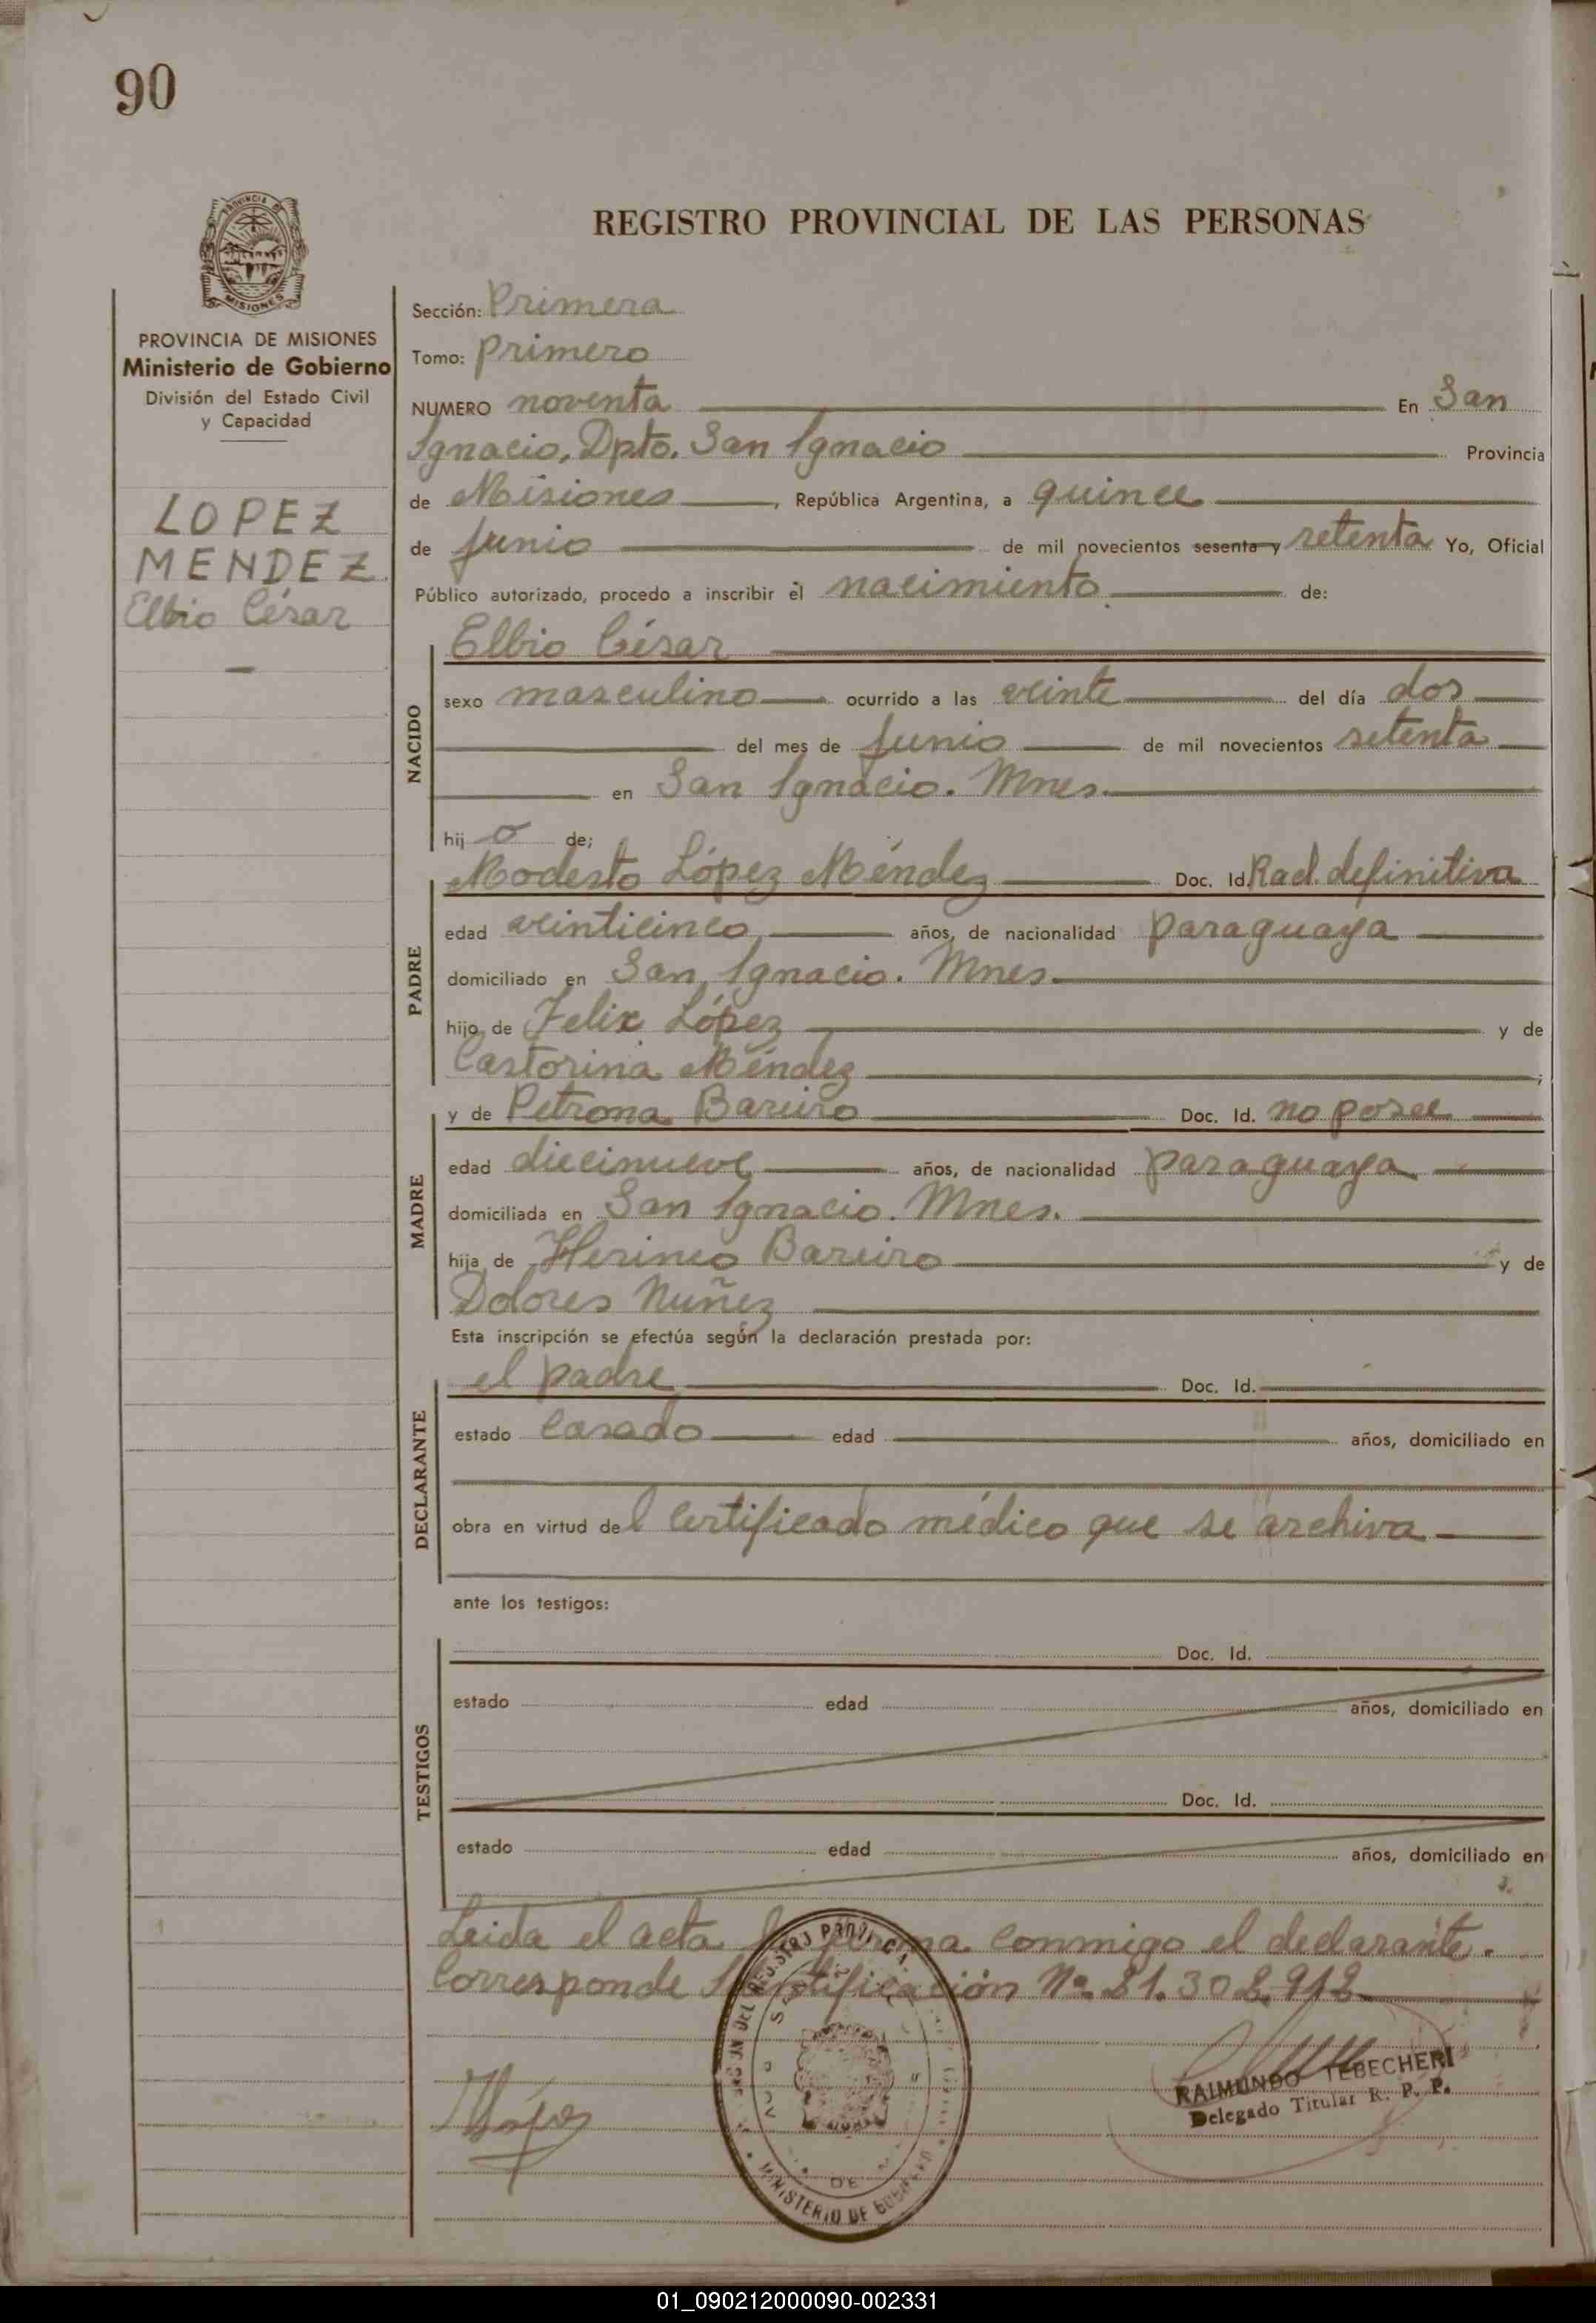 90
PROVINCIA DE
MISIONES
PROVINCIA DE MISIONES
Ministerio de Gobierno
División del Estado Civil
y Capacidad
LOPEZ
MENDEZ
Elbio César
REGISTRO PROVINCIAL DE LAS PERSONAS
Sección: Primera
Tomo: Primero
NUMERO noventa En San
Ignacio, Dpto. San Ignacio Provincia
de Misiones, República Argentina, a quince
de Junio de mil novecientos sesenta y setenta Yo, Oficial
Público autorizado, procedo a inscribir el nacimiento de:
NACIDO
Elbio César
sexo masculino ocurrido a las veinte del día dos
del mes de Junio de mil novecientos setenta
en San Ignacio. Mnes.
hijo de;
PADRE
Modesto López Méndez Doc. Id. Rad. definitiva
edad veinticinco años, de nacionalidad paraguaya
domiciliado en San Ignacio. Mnes.
hijo de Felix López y de
Castorina Méndez;
MADRE
y de Petrona Bareiro Doc. Id. no posee
edad diecinueve años, de nacionalidad paraguaya
domiciliada en San Ignacio. Mnes.
hija de Herineo Bareiro y de
Dolores Nuñez
Esta inscripción se efectúa según la declaración prestada por:
DECLARANTE
el padre Doc. Id.
estado casado edad años, domiciliado en
obra en virtud del certificado médico que se archiva
ante los testigos:
TESTIGOS
Doc. Id.
estado edad años, domiciliado en
Doc. Id.
estado edad años, domiciliado en
Leida el acta la firma conmigo el declarante.
Corresponde Identificación Nº
MINISTERIO DE GOBIERNO
RAIMUNDO TEBECHERI
Delegado Titular R. P. P.
01_090212000090-002331